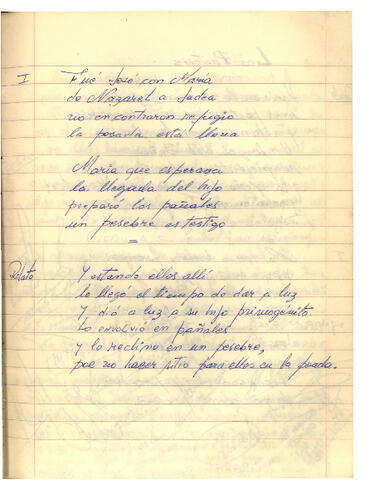 I
Fué José con María
de Nazaret a Judea
no encontraron refugio
la posada está llena
María que esperaba
la llegada del hijo
preparó los pañales
un pesebre es testigo
Relato
Y estando ellos allí
le llegó el tiempo de dar a luz
Y dió a luz a su hijo primogénito.
Lo envolvió en pañales
y lo reclinó en un pesebre,
por no haber sitio para ellos en la posada.